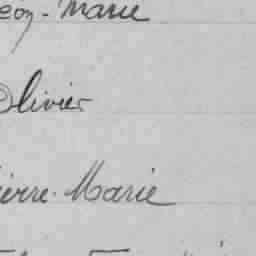 éon-Marie
Olivier
ierre-Marie